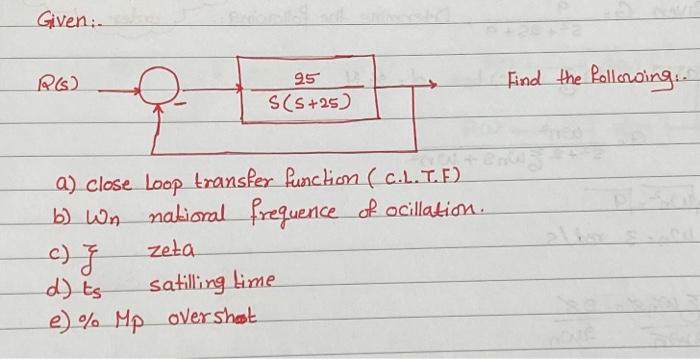 Given:.
R(s)
25
S(S+25)
Find the following:.
a) close loop transfer function ( C.L.T.F)
b) Wn national frequence of ocillation.
c) ξ zeta
d) ts satilling time
e) % Mp overshoot